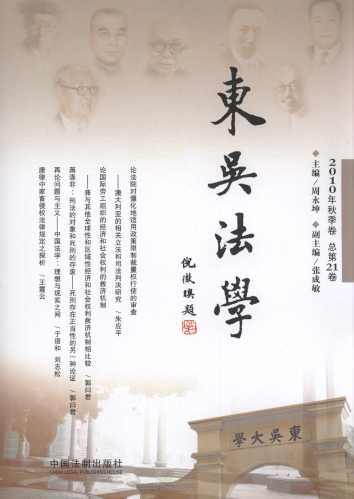 東吳法學
倪徵𣋉題
2010年秋季卷 总第21卷
◆主编/周永坤 ◆副主编/张成敏
论法院对僵化地适用政策限制裁量权行使的审查
——澳大利亚的相关立法和司法判决研究 /朱应平
论国际劳工组织的经济和社会权利的救济机制
——兼与其他全球性和区域性经济和社会权利救济机制相比较 /郭曰君
蒋涤非:刑法的对象和死刑的存废——死刑存在正当性的另一种论证 /郭曰君
再论问题与主义——中国法学:理想与现实之间 /于语和 刘志松
唐律中家畜侵权法律规定之探析 /王霞云
東吳大學
中国法制出版社
CHINA LEGAL PUBLISHING HOUSE